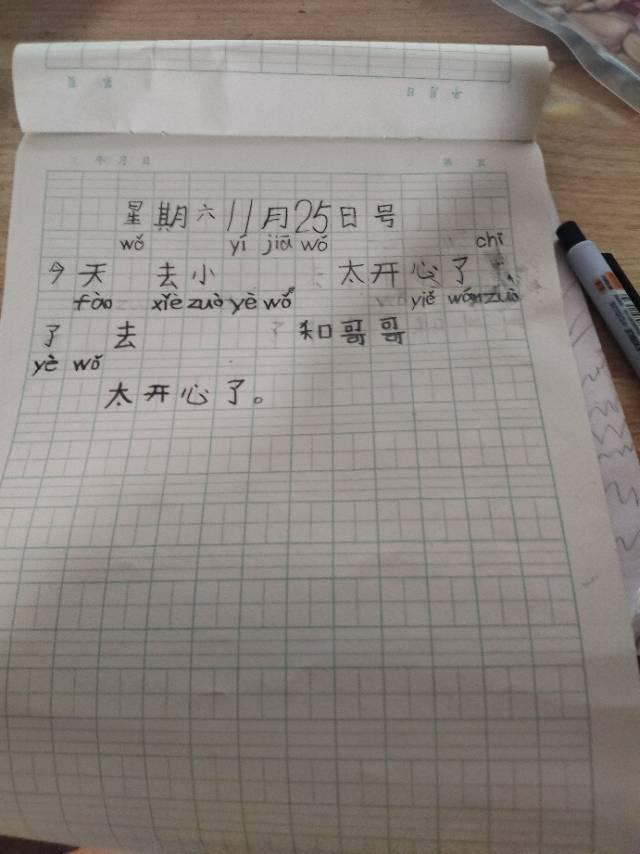 年 月 日 第 页
年 月 日 第 页
星期六11月25日号
wǒ yí jiā wǒ chī
今天 去小 太开心了
fào xiě zuò yè wǒ yiě wán zuò
了 去 和哥哥
yè wǒ
太开心了。